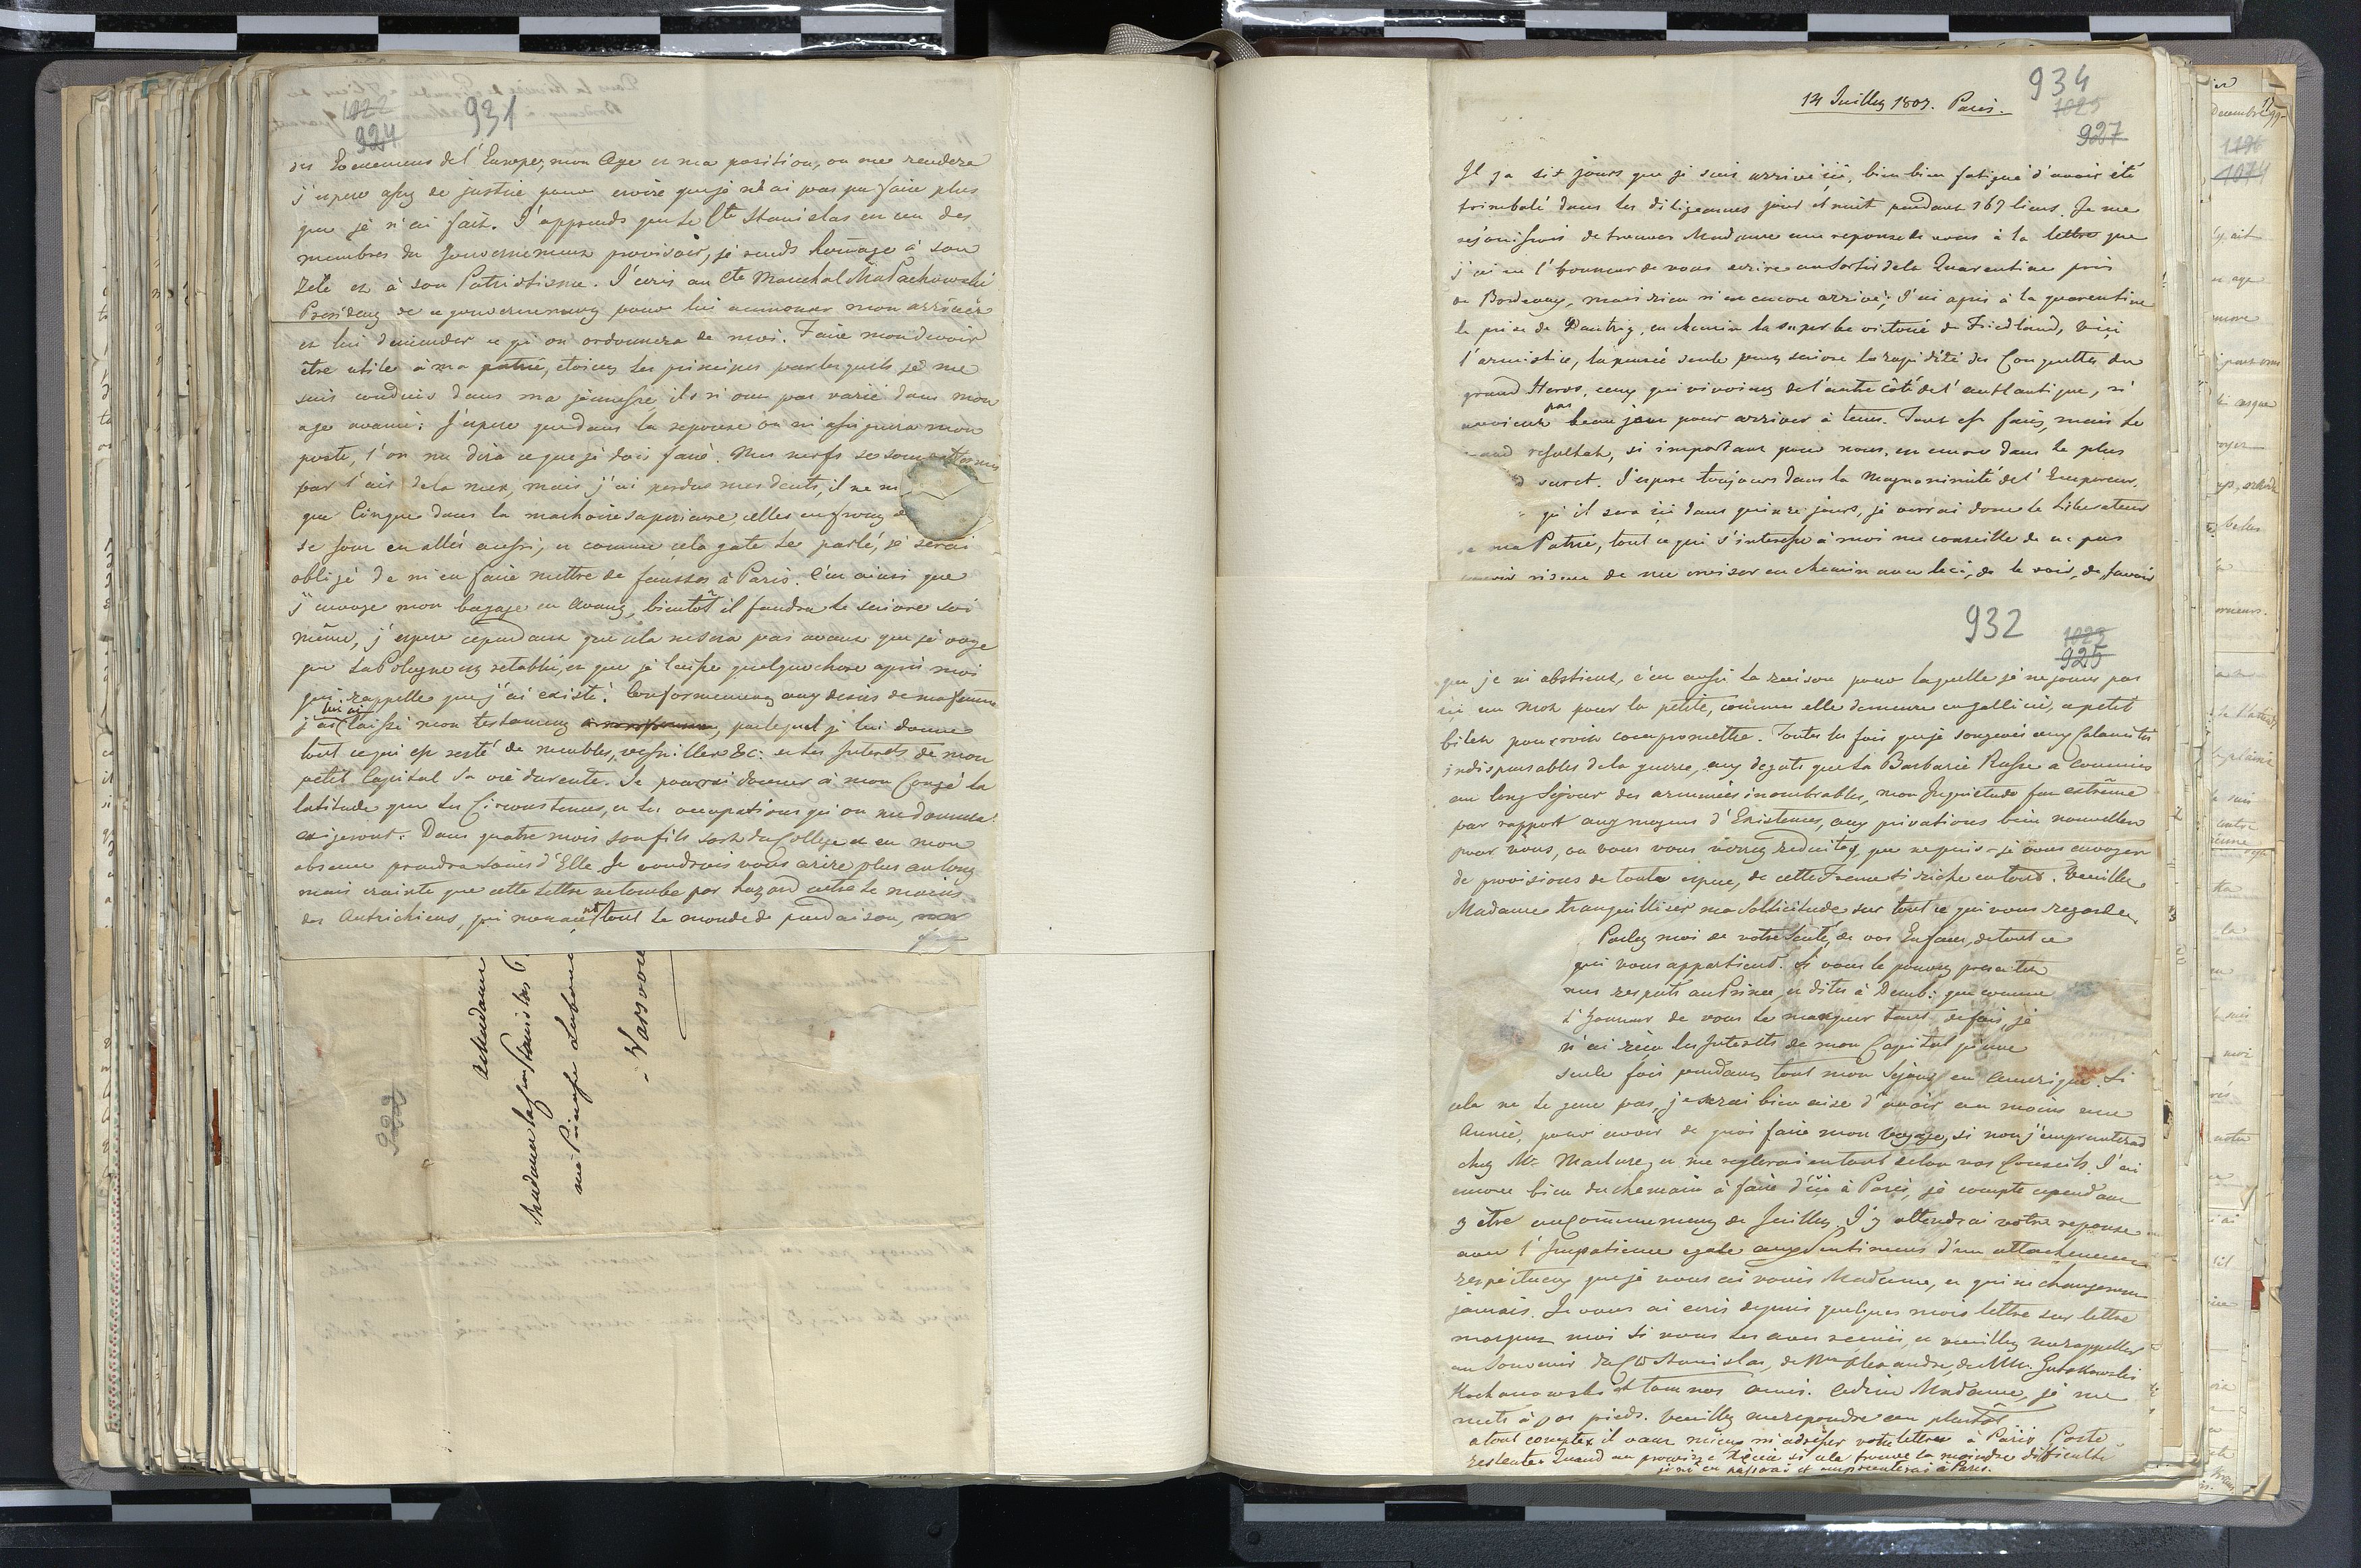 1022 931
924
des Evenemens de l'Europe, mon Age et ma position, on me rendera
j'espere assez de justice pour croire que je n'ai pas pu faire plus
que je n'ai fait. J'apprends que le Cte Stanislas en un des
membres du Gouvernement provisoir, je rends homage à son
Zele et à son Patriotisme. J'ecris au Cte Marechal Malachowski
President de ce gouvernement pour lui annoncer mon arrivée
et lui demender ce qu'on ordonnera de moi. Faire mon devoir
être utile à ma patrie, etoient les principes par lesquels je me
suis conduis dans ma jeunesse, ils n'ont pas varié dans mon
age avancé; J'espere que dans la reponse on m'assignera mon
poste, l'on me dira ce que je dois faire. Mes nerfs se sont
par l'air de la mer, mais j'ai perdus mes dents, il ne m
que Cinque dans la machoire superieure, celles en
se sont en allés aussi, et comme cela gate le parlé, je serai
obligé de m'en faire mettre de fausses à Paris. C'en ainsi que
j'envoye mon bagage en avant, bientot il faudra le suivre soi
même, j'espere cependant que cela ne sera pas avant que je voye
que la Pologne est retablie, et que je laisse quelque chose après moi
qui rappelle que j'ai existé. Conformement aux desirs de ma femme
lui ai
j'ai laissé mon testament, par lequel je lui donne
tout ce qui est resté de meubles, vessailles &c: et les Interets de mon
petit Capital sa vie durante. Je pourrai donner à mon Congé la
latitude que les Circonstences, et les occupations qu'on me donnera
exigeront. Dans quatre mois son fils sort du College et en mon
absence prendra soins d'Elle. Je voudrais vous ecrire plus au long
mais crainte que cette lettre ne tombe par hazard entre les mains
des Autrichiens, qui tout le monde de pendaison,
A Madame
Madame la Cesse Stanislas
née Princesse Lubomi
à Varsovie
14 Juillet 1807. Paris.
934
1025
927
Il y a six jours que je suis arrivé ici, bien bien fatigué d'avoir été
trimbalé dans les diligeances jour et nuit pendant 167 lieus. Je me
rejouissois de trouver Madame une reponse de vous à la lettre que
j'ai eu l'honneur de vous ecrire au sortir de la Quarentine près
de Bordeaux, mais rien n'en encore arrivé; J'ai apris à la quarentine
la prise de Dantzig, en chemin la superbe victoire de Friedland, ici
l'armistice, la pensée seule peut suivre la rapidité des Conquettes du
grand Heros, ceux qui vivoient de l'autre côté de l'antlantique, n'
pas
avoient beau jeu pour arriver à tems. Tout est fait, mais le
resultat, si important pour nous, en encore dans le plus
secret. J'espere toujours dans la Magnanimité de l'Empereur.
qu'il sera ici dans quinze jours, je verrai donc le Liberateur
de ma Patrie, tout ce qui s'interesse à moi me conseille de ne pas
risque de me croiser en chemin avec lui, de le voir, de savoir
932 1023
925
que je m'abstiens, c'en aussi la raison pour laquelle je ne joins pas
ici un mot pour la petite, comme elle demeure en gallicie, ce petit
bilet pourroit compromettre. Toutes les fois que je songeois aux Calamites
indispensables de la guerre, aux degats que la Barbarie Russe a commis
au long Sejour des armmées inombrables, mon Inquietude fut extrême
par rapport aux moyens d'Existences, aux privations bien nouvelles
pour vous, ou vous vous voiez reduites, que ne puis-je vous envoyer
de provisions de toute espece, de cette France si riche en tout. Veuillez
Madame tranquilliser ma Sollicitude sur tout ce qui vous regarde.
Parlez moi de votre Santé, de vos Enfans, de tout ce
qui vous appartient. Si vous le pouvez presenter
mes respects au Prince, et dites à Demb: que comme
l'honneur de vous le marquer tant de fois, je
n'ai reçu les Interets de mon Capital qu'une
seule fois pendant tout mon Sejour en Amerique. Si
cela ne le gene pas, je serai bien aise d'avoir au moins une
Année, pour avoir de quoi faire mon voyage, si non j'emprunterai
chez Mr Maclure, et me reglerai en tout selon vos Conseils. J'ai
encore bien du chemain à faire d'ici à Paris, je compte cependant
y être au commencement de Juillet. J'y attendrai votre reponse
avec l'Impatience egale aux Sentimens d'un attachement
respectueux que je vous ai voués Madame, et qui ne changeront
jamais. Je vous ai ecris depuis quelques mois lettre sur lettre
marquez moi si vous les avez recues, et veuillez me rappeller
au Souvenir du Cte Stanislas, de Mme Alexandre, de MM. Gutakowski
Kochanowski et tous nos amis. Adieu Madame, je me
mets à vos pieds. Veuillez me repondre au plutôt
a tout compter il vaut mieux m'adresser votre lettre à Paris Poste
restente. Quand au si cela trouve la moindre difficulté
je m'en passerai et emprunterai à Paris.